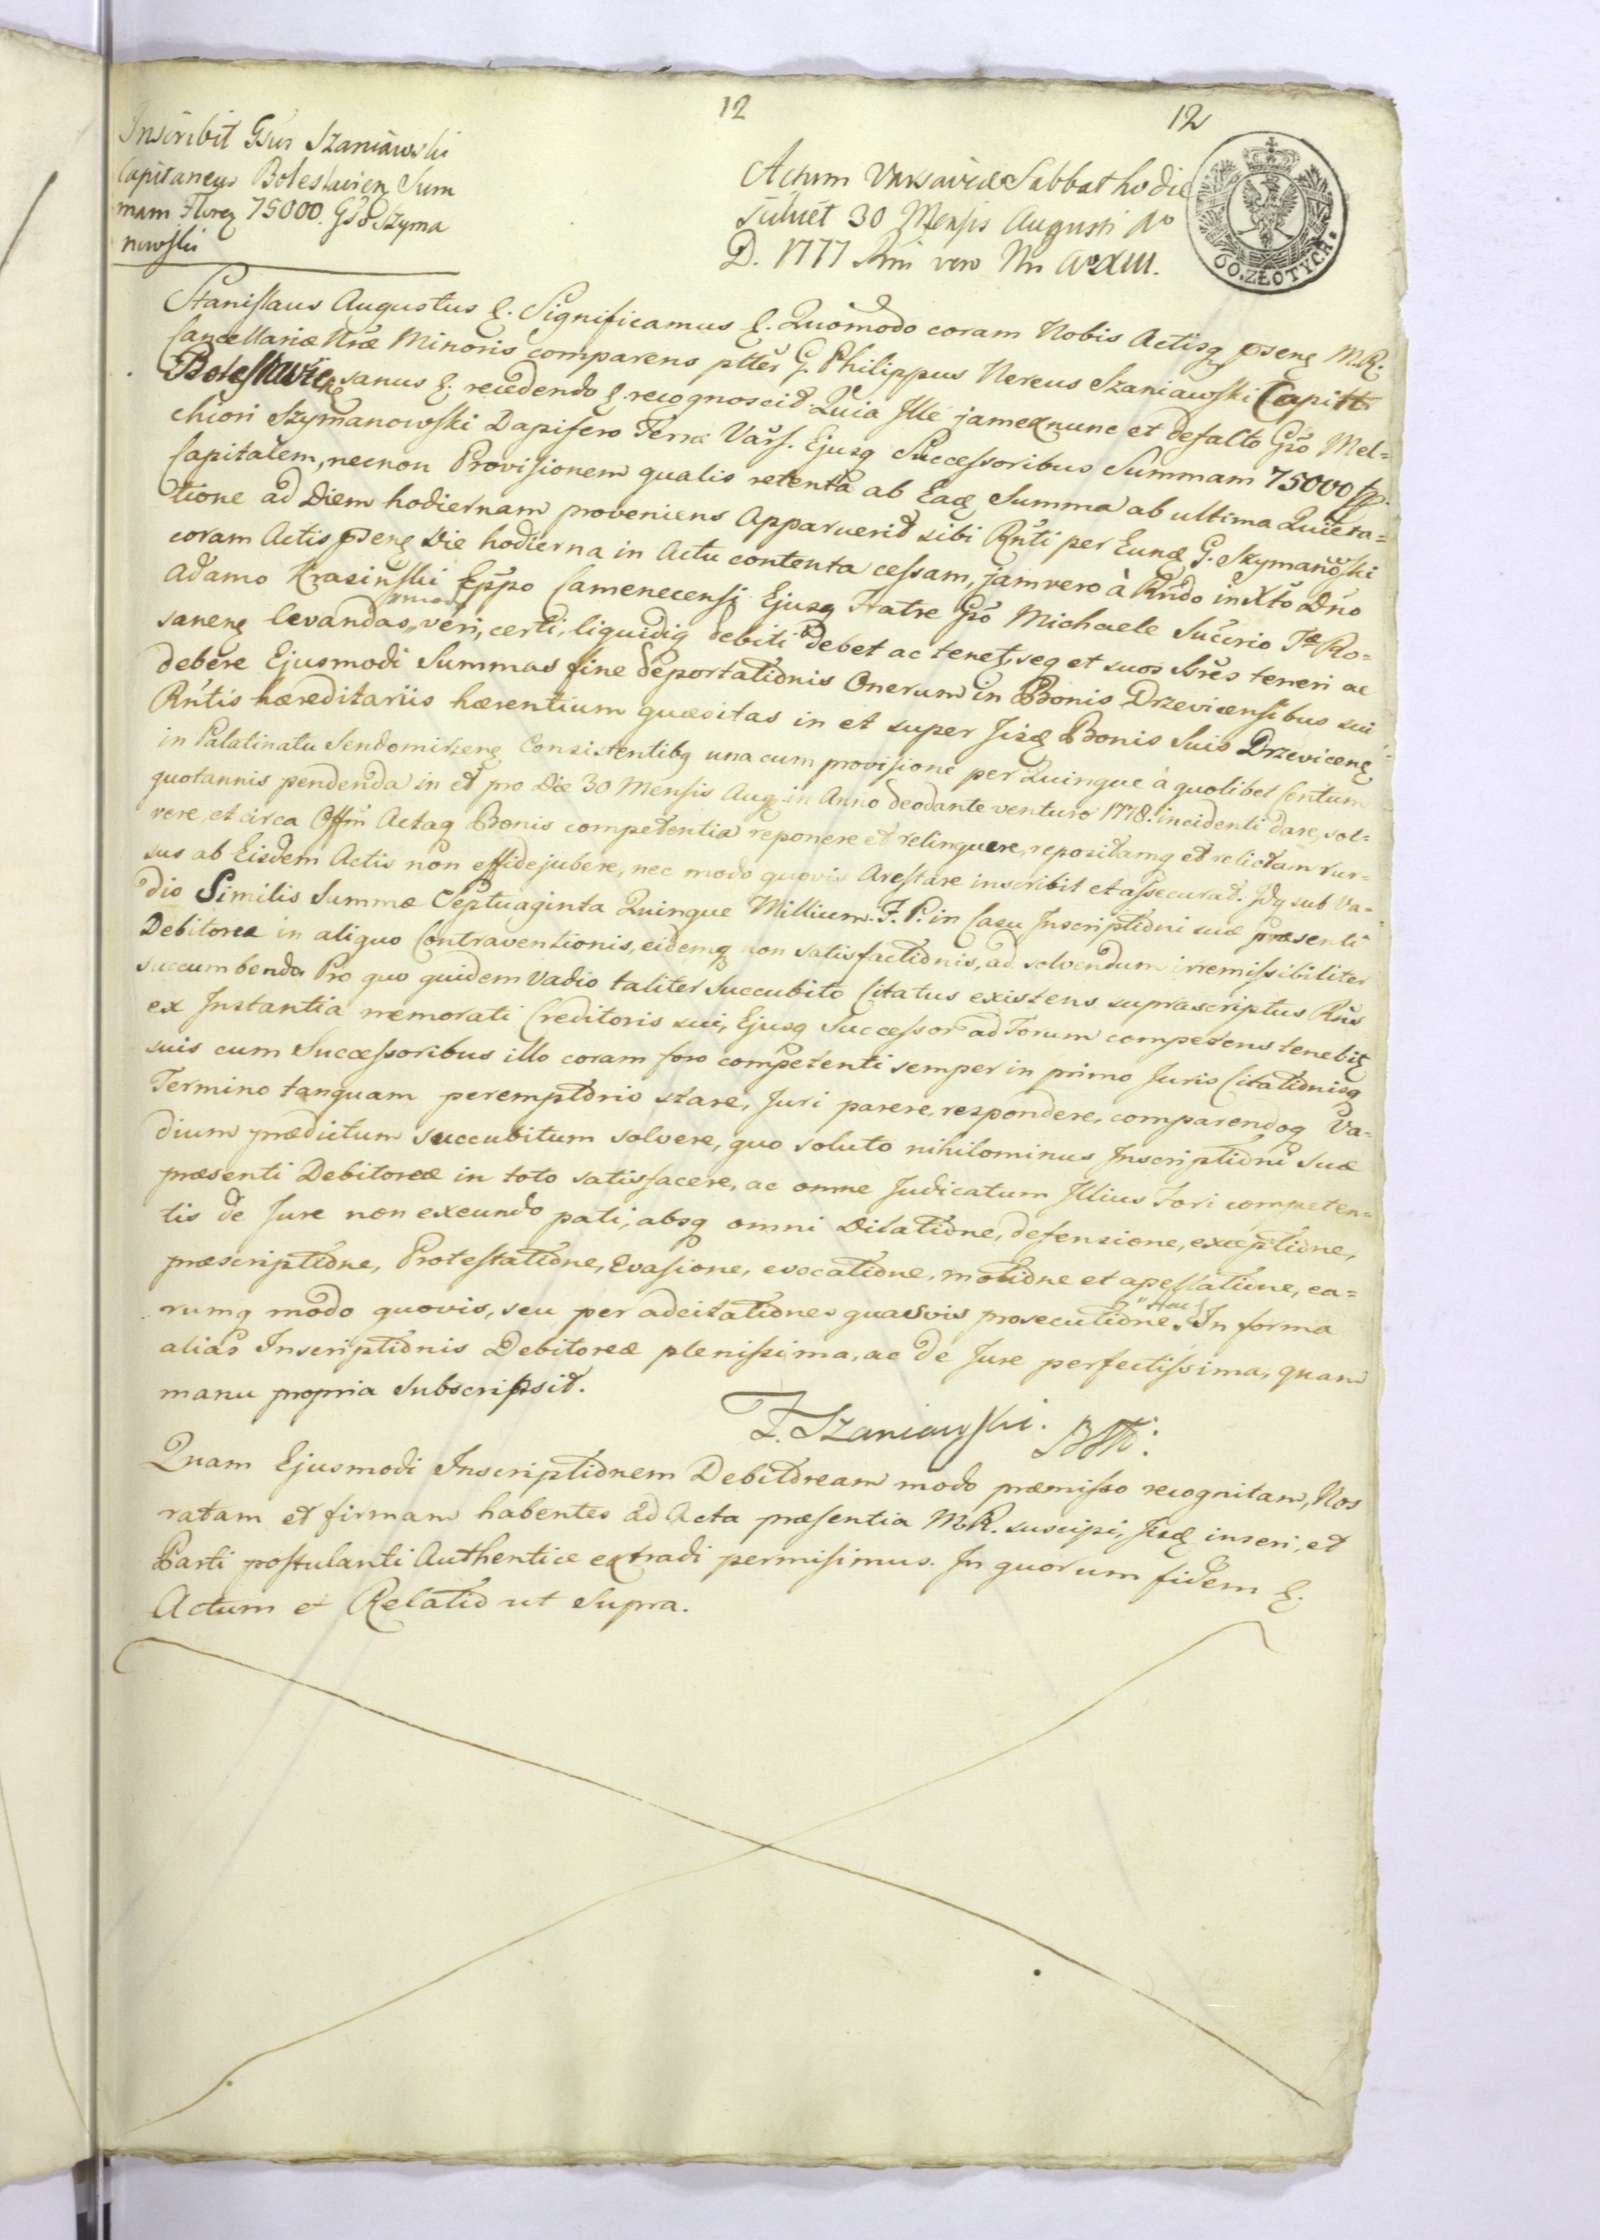 12
12
Inscribit Gsus Szaniawski
Capitaneus Boleslavien Sum
mam Floren 75000. Gso Szyma
nowski
Actum Varsaviæ Sabbatho die
30 Mensis Augusti Ao
D. 1777 vero Ao XIII.
60. ZŁOTYCH.
Stanislaus Augustus &. Significamus &. Quomodo coram Nobis Actisq psenq M.R.
Cancellariæ Nræ Minoris comparens pltter G. Philippus Nereus Szaniawski Capitt
Boleslavicensanus &. recedendo &. recognoscit. Quia Ille jam ex nunc et defacto Gso Mel=
chiori Szymanowski Dapifero Terræ Vars. Ejusq Successoribus Summam 75000 fp.
Capitalem, necnon Provisionem qualis retenta ab Eaq Summa ab ultima Quieta=
tione ad Diem hodiernam proveniens Apparuerit sibi Rnti per Eunq G. Szymanowski
coram Actis psenq Die hodierna in Actu contenta cessam, jam vero à Rndo in Xto Dno
Adamo Krasinski Eppo Camenecensi Ejusq Fratre Gso Michaele Succ Ro=
sanenq levandas, veri, certi, liquidiq debiti debet ac tenetq, seq et suos Sres teneri ac
debere Ejusmodi Summas fine deportationis Onerum in Bonis Drzevicensibus sui
Rntis hæreditariis hærentium quæsitas in et super Iisq Bonis Suis Drzevicenq
in Palatinatu Sendomirienq Consistentibq una cum provisione per Quinque à quolibet Centum
quotannis pendenda in et pro Die 30 Mensis Augq in Anno deodante venturo 1778. incidenti dare, sol=
vere, et circa Offm Actaq Bonis competentia reponere et relinquere, repositamq et relictam rur=
sus ab Eisdem Actis non effidejubere, nec modo quovis Arestare inscribit et assecurat. Idq sub Va=
dio Similis Summæ Septuaginta Quinque Millium F. P. in Casu Inscriptioni suæ præsenti
Debitoreæ in aliquo Contraventionis, eidemq non satisfactionis, ad solvendum irremissibiliter
succumbendo. Pro quo quidem Vadio taliter Succubito Citatus existens suprascriptus Rns
ex Instantia memorati Creditoris sui, Ejusq Successor ad Forum competens tenebitq
suis cum Successoribus illo coram foro competenti semper in primo Juris Citationisq
Termino tanquam peremptorio stare, Juri parere, respondere, comparendoq Va=
dium prædictum succubitum solvere, quo soluto nihilominus Inscriptioni Suæ
præsenti Debitoreæ in toto satisfacere, ac omne Judicatum Illius Fori competen=
tis de Jure non exeundo pati, absq omni Dilatione, defensione, exceptione,
præscriptione, Protestatione, Evasione, evocatione, motione et apellatione, ea=
rumq modo quovis, seu per adcitationes quasvis prosecutione. Hac In forma
alias Inscriptionis Debitoreæ plenissima, ac de Jure perfectissima, quam
manu propria Subscripsit.
F. Szaniawski.
Quam Ejusmodi Inscriptionem Debitoream modo præmisso recognitam, Nos
ratam et firmam habentes ad Acta præsentia M.R. suscipi, Iisq inseri, et
Parti postulanti Authentice extradi permisimus. In quorum fidem &.
Actum et Relatio ut Supra.